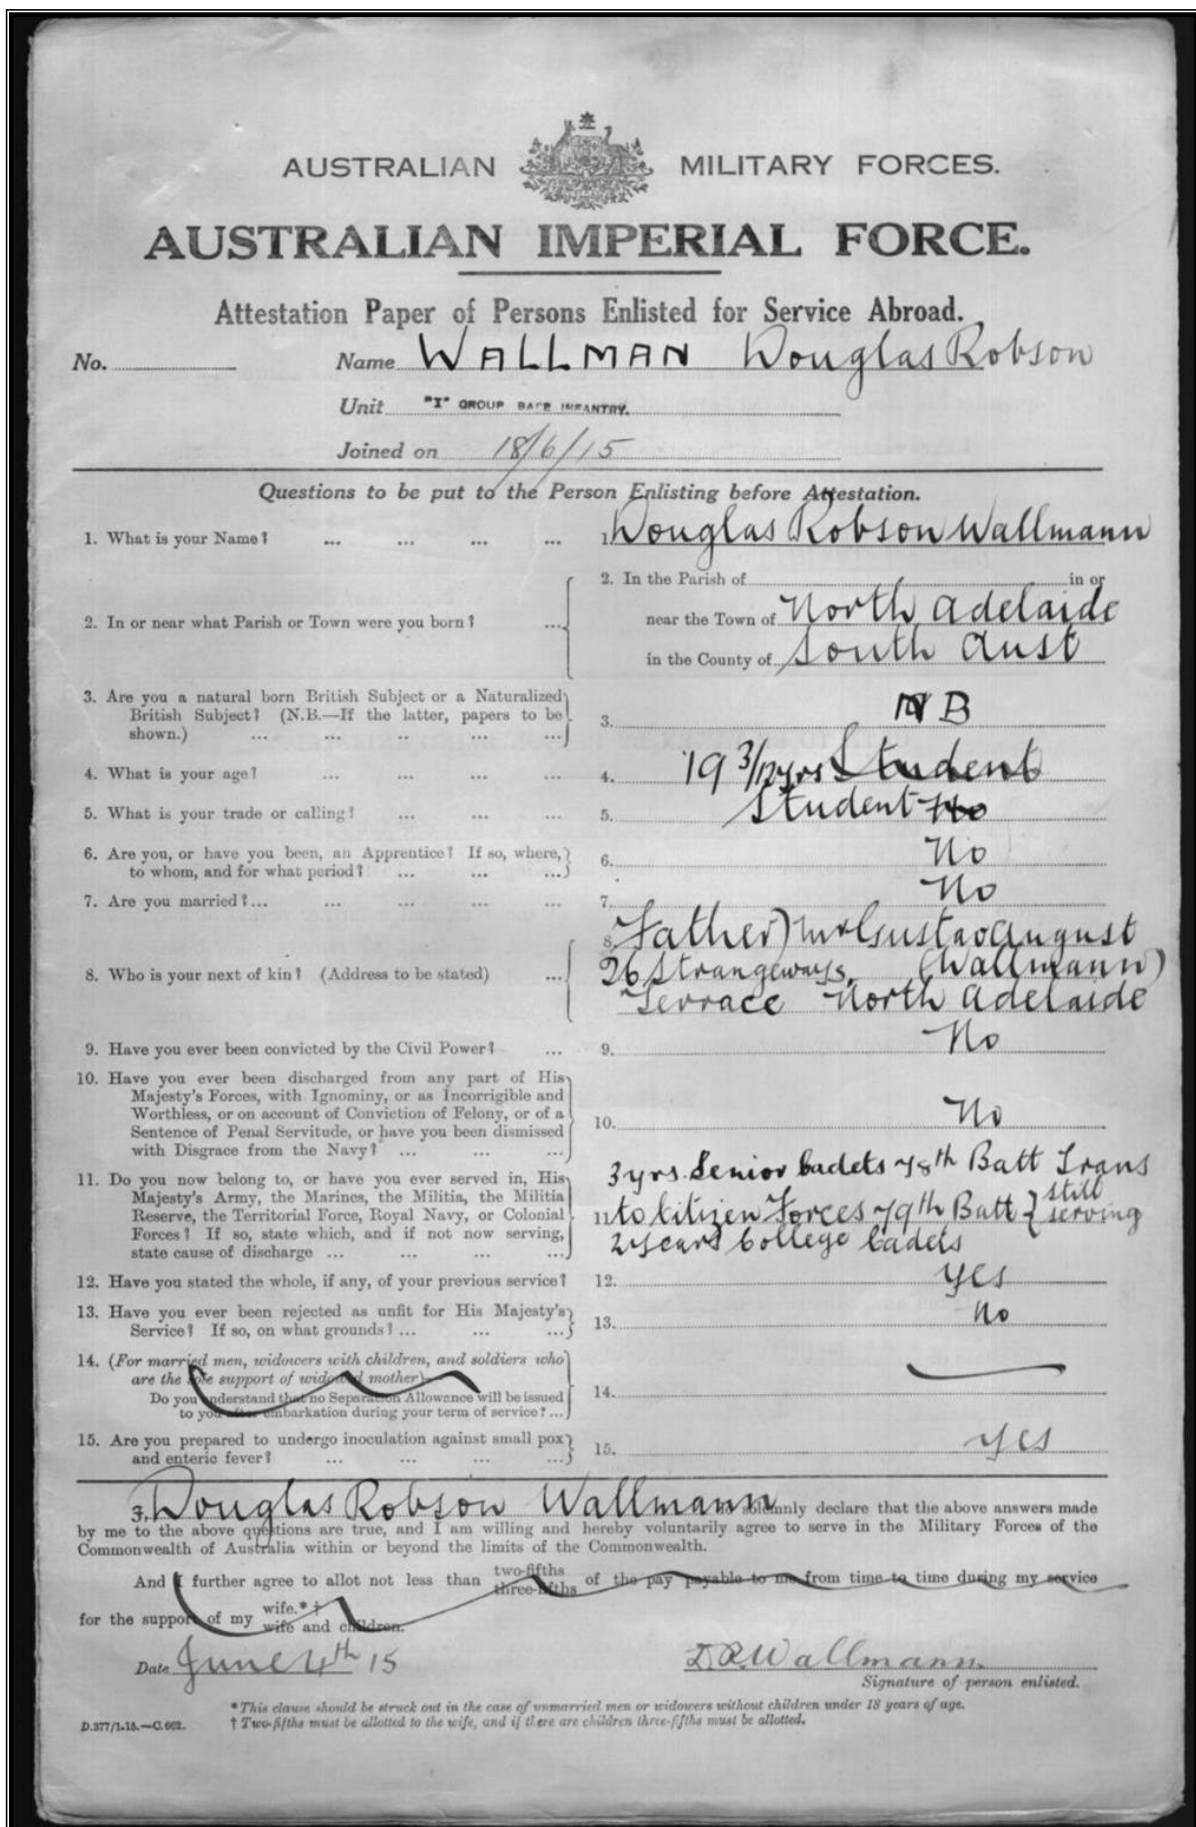 AUSTRALIAN MILITARY FORCES.
AUSTRALIAN IMPERIAL FORCE.
Attestation Paper of Persons Enlisted for Service Abroad.
No. Name WALLMAN Douglas Robson
Unit "I" GROUP BASE INFANTRY.
Joined on 18/6/15
Questions to be put to the Person Enlisting before Attestation.
1. What is your Name? ... ... ... ... 1. Douglas Robson Wallmann
2. In or near what Parish or Town were you born? ...
2. In the Parish of in or
near the Town of North Adelaide
in the County of South Aust
3. Are you a natural born British Subject or a Naturalized
British Subject? (N.B.—If the latter, papers to be
shown.) ... ... .. ... ...
3. NB
4. What is your age? ... ... ... ... 4. 19 3/12 yrs Student
5. What is your trade or calling? ... ... ... 5. Student No
6. Are you, or have you been, an Apprentice? If so, where,
to whom, and for what period? ... ... ...
6. No
7. Are you married?... ... ... ... ... 7. No
8. Who is your next of kin? (Address to be stated) ...
8. Father) Mr Gustav August
26 Strangeways (Wallmann)
Terrace North Adelaide
9. Have you ever been convicted by the Civil Power? ... 9. No
10. Have you ever been discharged from any part of His
Majesty's Forces, with Ignominy, or as Incorrigible and
Worthless, or on account of Conviction of Felony, or of a
Sentence of Penal Servitude, or have you been dismissed
with Disgrace from the Navy? ... ... ...
10. No
11. Do you now belong to, or have you ever served in, His
Majesty's Army, the Marines, the Militia, the Militia
Reserve, the Territorial Force, Royal Navy, or Colonial
Forces? If so, state which, and if not now serving,
state cause of discharge ... ... ... ...
3 yrs Senior Cadets 78th Batt Trans
11. to Citizen Forces 79th Batt } still serving
2 years College Cadets
12. Have you stated the whole, if any, of your previous service? 12. Yes
13. Have you ever been rejected as unfit for His Majesty's
Service? If so, on what grounds? ... ... ...
13. No
14. (For married men, widowers with children, and soldiers who
are the sole support of widowed mother)—
Do you understand that no Separation Allowance will be issued
to you after embarkation during your term of service? ...
14.
15. Are you prepared to undergo inoculation against small pox
and enteric fever? ... ... ... ...
15. Yes
I, Douglas Robson Wallmann do solemnly declare that the above answers made
by me to the above questions are true, and I am willing and hereby voluntarily agree to serve in the Military Forces of the
Commonwealth of Australia within or beyond the limits of the Commonwealth.
And I further agree to allot not less than two-fifths three-fifths of the pay payable to me from time to time during my service
for the support of my wife.* † wife and children.
Date June 4th 15 D.R.Wallmann
Signature of person enlisted.
* This clause should be struck out in the case of unmarried men or widowers without children under 18 years of age.
D.377/1.15.—C.662. † Two-fifths must be allotted to the wife, and if there are children three-fifths must be allotted.